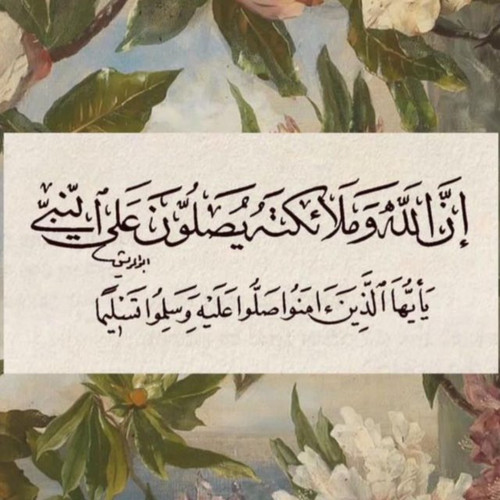 إِنَّ اللَّهَ وَمَلَائِكَتَهُ يُصَلُّونَ عَلَى النَّبِيِّ
يَٰأَيُّهَا ٱلَّذِينَ ءَامَنُوا صَلُّوا عَلَيْهِ وَسَلِّمُوا تَسْلِيمًا